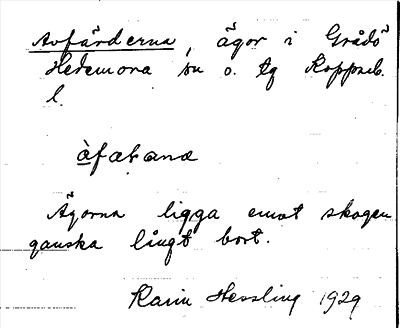 Avfärderna, ägor i Grådö
Hedemora sn o. tg Kopparb.
l.
àfæꞧanæ
Ägorna ligga emot skogen
ganska långt bort.
Karin Hessling 1929